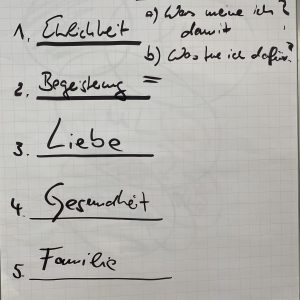 a) Was meine ich
damit ?
b) Was tue ich dafür?
1. Ehrlichkeit
2. Begeisterung
3. Liebe
4. Gesundheit
5. Familie